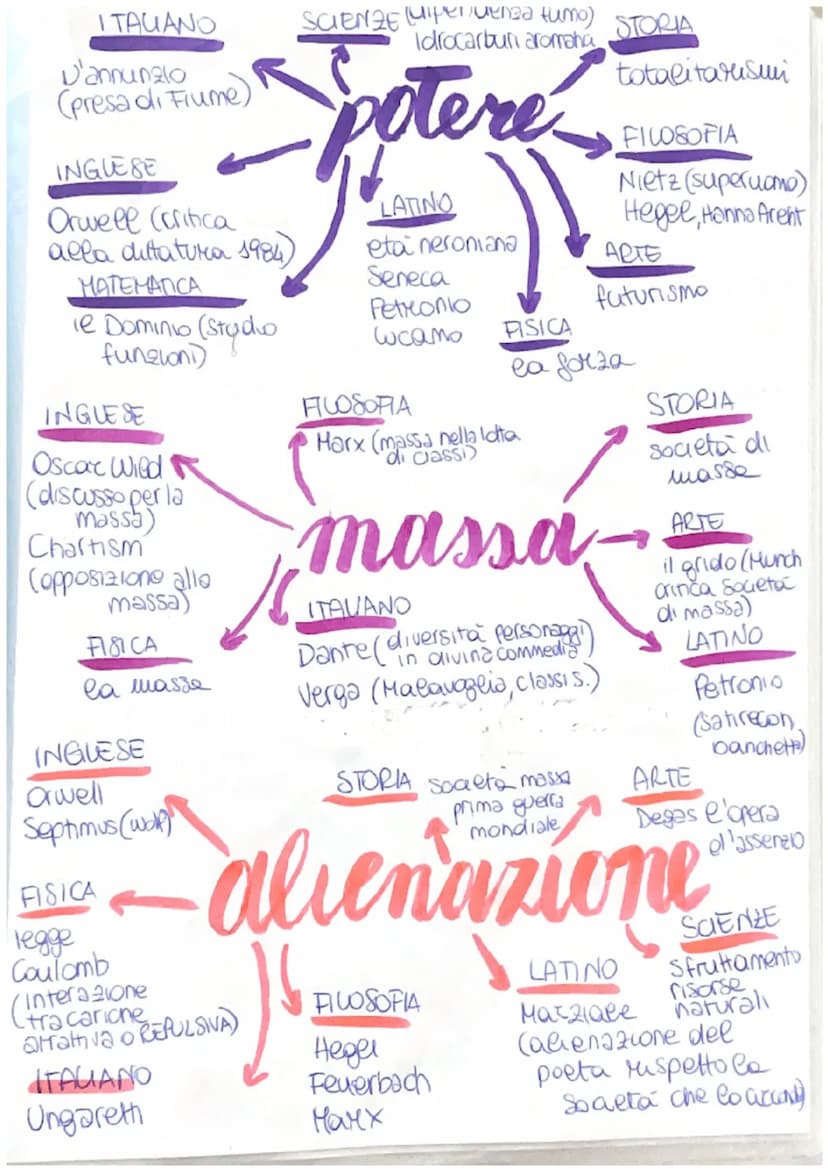 ITALIANO
D'annunzio
(presa di Fiume)
SCIENZE (dipendenza fumo)
Idrocarburi aromatici
STORIA
totalitarismi
potere
FILOSOFIA
Nietz (superuomo)
Hegel, Hanna Arent
INGLESE
Orwell (critica
alla dittatura 1984)
LATINO
età neroniana
Seneca
Petronio
Lucano
ARTE
futurismo
MATEMATICA
ie Dominio (Studio
funzioni)
FISICA
la forza
INGLESE
Oscar Wild
(discusso per la
massa)
Chartism
(opposizione alla
massa)
FILOSOFIA
Marx (massa nella lotta
di classi)
STORIA
società di
massa
massa
ARTE
il grido (Munch
critica società
di massa)
FISICA
la massa
ITALIANO
Dante (diversità personaggi
in divina commedia)
Verga (Malavoglia, classi s.)
LATINO
Petronio
(Satirecon,
banchetti)
INGLESE
Orwell
Septimus (Wolf)
STORIA società massa
prima guerra
mondiale
ARTE
Degas l'opera
d'assenzio
alienazione
FISICA
legge
Coulomb
(interazione
tra cariche
attrattiva o REPULSIVA)
SCIENZE
sfruttamento
risorse
naturali
FILOSOFIA
Hegel
Feuerbach
Marx
LATINO
Marziale
(alienazione del
poeta rispetto la
società che lo
ITALIANO
Ungaretti